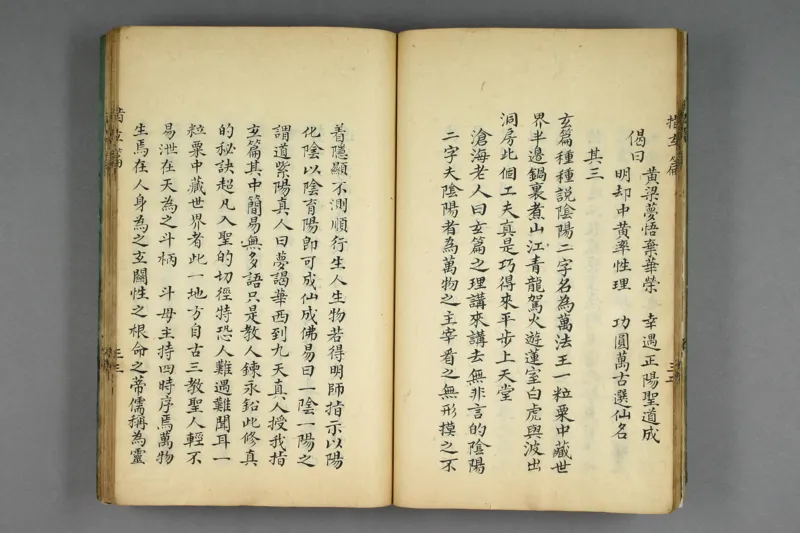 指玄篇
偈曰 黃梁夢悟棄華榮 幸遇正陽聖道成
明却中黃率性理 功圓萬古選仙名
其三
玄篇種種說陰陽二字名為萬法王一粒粟中藏世
界半邊鍋裏煮山江青龍駕火遊蓮室白虎與波出
洞房此個工夫真是巧得來平步上天堂
滄海老人曰玄篇之理講來講去無非言的陰陽
二字夫陰陽者為萬物之主宰看之無形摸之不
着隱顯不測順行生人生物若得明師指示以陽
化陰以陰育陽即可成仙成佛易曰一陰一陽之
謂道紫陽真人曰夢謁華西到九天真人授我指
玄篇其中簡易無多語只是教人鍊汞鉛此修真
的秘訣超凡入聖的切徑特恐人難遇難聞耳一
粒粟中藏世界者此一地方自古三教聖人輕不
易泄在天為之斗柄 斗母主持四時序焉萬物
生焉在人身為之玄關性之根命之蒂儒稱為靈
指玄篇